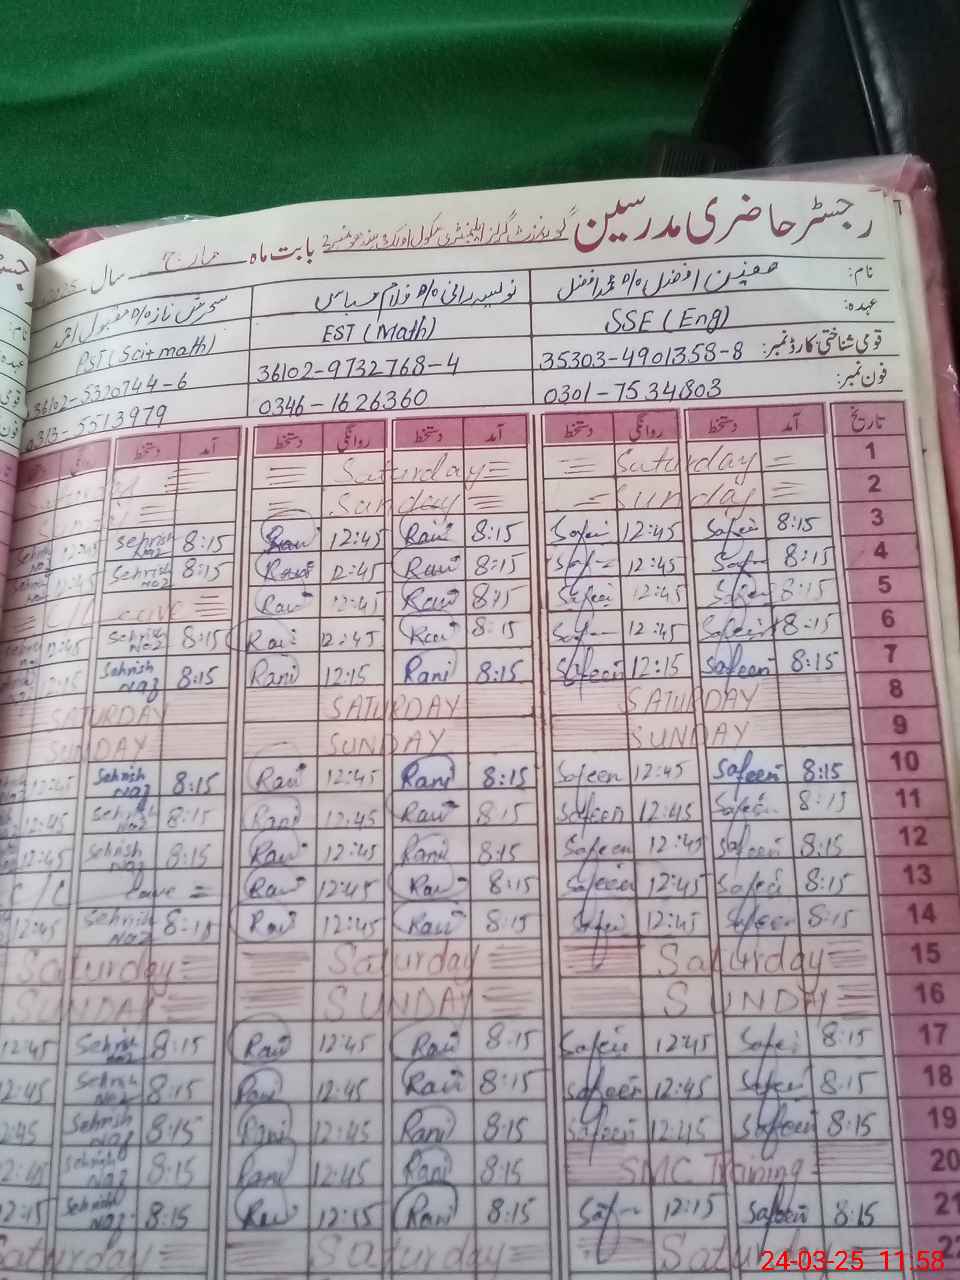 رجسٹر حاضری مدرسین گورنمنٹ گرلز ایلیمنٹری سکول بابت ماہ مارچ سال 2025
نام:
عہدہ: SSE (Eng) EST (Math) PST (Sci+math)
قومی شناختی کارڈ نمبر: 35303-4901358-8 36102-9732768-4 36102-5320744-6
فون نمبر: 0301-7534803 0346-1626360 0313-5513979
تاریخ آمد دستخط روانگی دستخط آمد دستخط روانگی دستخط آمد دستخط
1 Saturday Saturday
2 Sunday Sunday
3 8:15 Safeen 12:45 Safeen 8:15 Rani 12:45 Rani 8:15 Sehrish Naz 12:45
4 8:15 12:45 8:15 Rani 12:45 Rani 8:15 Sehrish Naz 12:45
5 8:15 Safeen 12:45 Safeen 8:15 Rani 12:45 Rani C/Leave
6 8:15 Safeen 12:45 8:15 Rani 12:45 Rani 8:15 Sehrish Naz 12:45
7 8:15 Safeen 12:15 Safeen 8:15 Rani 12:15 Rani 8:15 Sehrish Naz 12:15
8 SATURDAY SATURDAY SATURDAY
9 SUNDAY SUNDAY SUNDAY
10 8:15 Safeen 12:45 Safeen 8:15 Rani 12:45 Rani 8:15 Sehrish Naz 12:45
11 8:15 Safeen 12:45 Safeen 8:15 Rani 12:45 Rani 8:15 Sehrish Naz 12:45
12 8:15 Safeen 12:45 Safeen 8:15 Rani 12:45 Rani 8:15 Sehrish Naz 12:45
13 8:15 Safeen 12:45 Safeen 8:15 Rani 12:45 Rani C/Leave
14 8:15 Safeen 12:45 Safeen 8:15 Rani 12:45 Rani 8:15 Sehrish Naz 12:45
15 Saturday Saturday Saturday
16 SUNDAY SUNDAY SUNDAY
17 8:15 Safeen 12:45 Safeen 8:15 Rani 12:45 Rani 8:15 Sehrish Naz 12:45
18 8:15 Safeen 12:45 Safeen 8:15 Rani 12:45 Rani 8:15 Sehrish Naz 12:45
19 8:15 Safeen 12:45 Safeen 8:15 Rani 12:45 Rani 8:15 Sehrish Naz 12:45
20 SMC Training 8:15 Rani 12:45 Rani 8:15 Sehrish Naz 12:45
21 8:15 Safeen 12:15 8:15 Rani 12:15 Rani 8:15 Sehrish Naz 12:15
22 Saturday Saturday Saturday
24-03-25 11:58